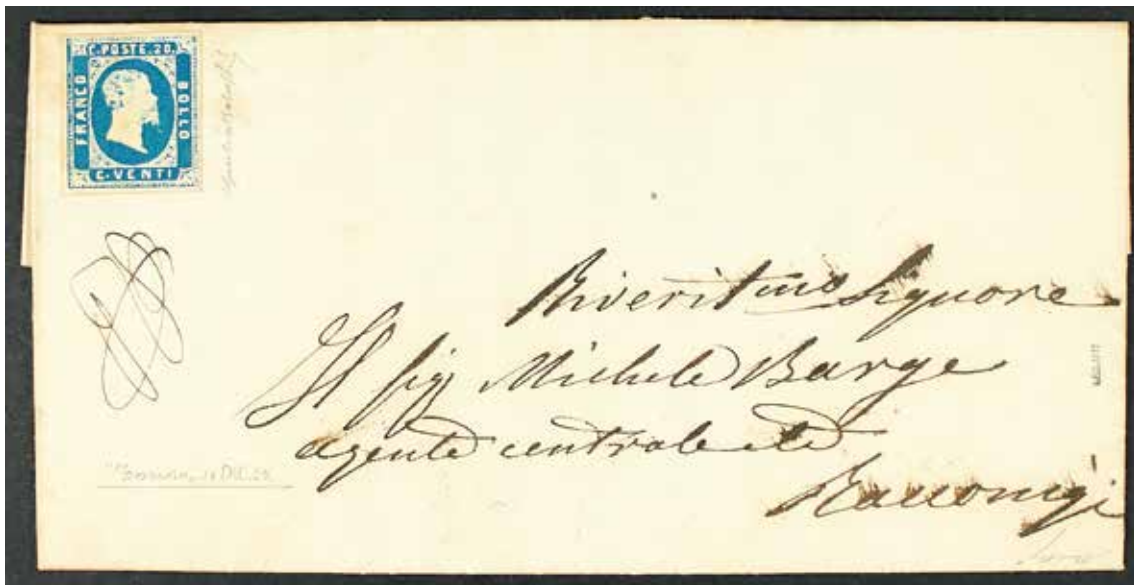 C. POSTE. 20.
FRANCO
BOLLO
C. VENTI
Riverit.mo Signore
Il Sig Michele Barge
agente centrale etc
Racconigi